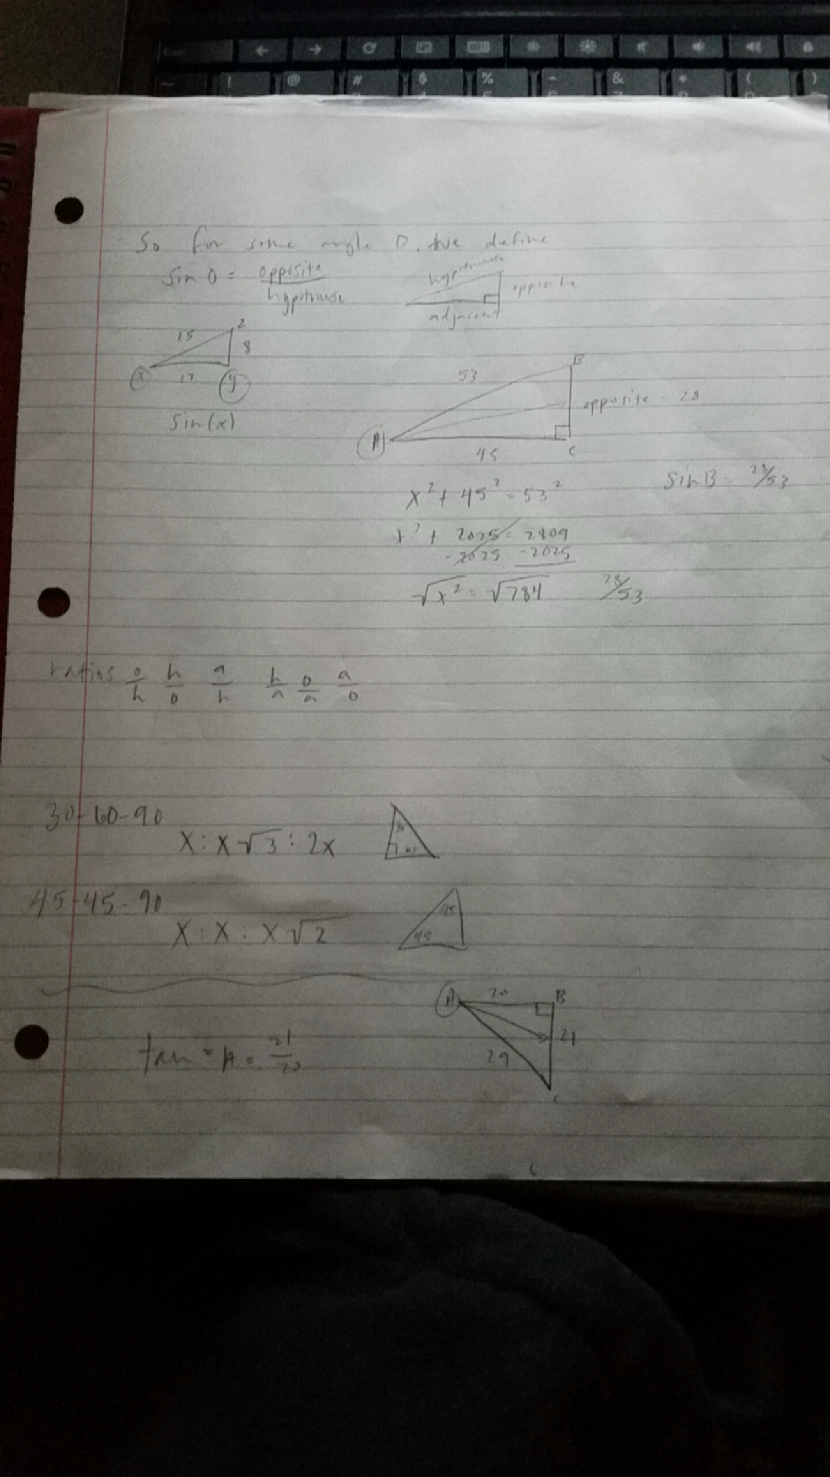 So for some angle O, we define
Sin O = opposite / hypotnuse
hypotnuse
opposite
adjacent
15
Z
8
X
17
y
Sin(x)
53
B
opposite = 28
A
45
C
x² + 45² = 53²
SinB = 28/53
x² + 2025 = 2809
-2025 -2025
√x² = √784
28/53
ratios o/h h/o a/h h/a o/a a/o
30-60-90
X : X√3 : 2x
30
60
45-45-90
X : X : X√2
45
45
A
20
B
21
29
C
tan = A = 21/20
! @ # $ % ^ & * ( )